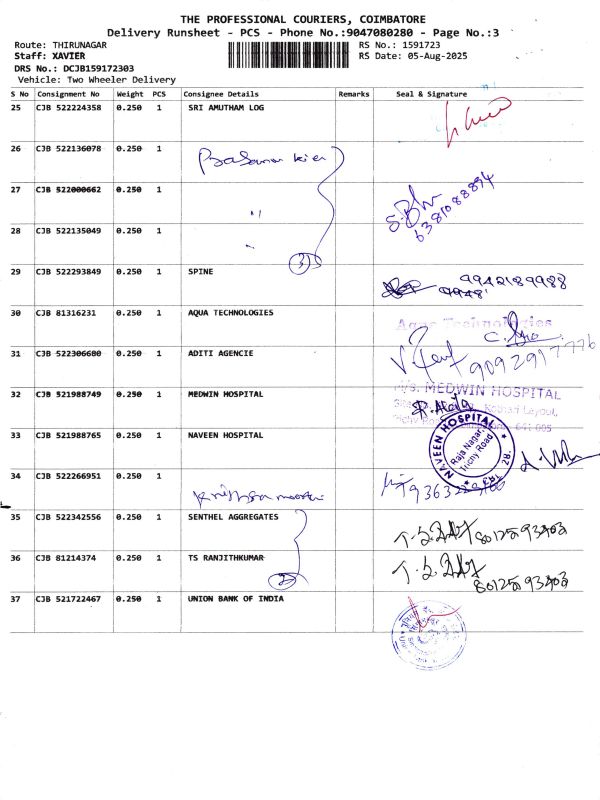 THE PROFESSIONAL COURIERS, COIMBATORE
Delivery Runsheet - PCS - Phone No.:9047080280 - Page No.:3
Route: THIRUNAGAR RS No.: 1591723
Staff: XAVIER RS Date: 05-Aug-2025
DRS No.: DCJB159172303
Vehicle: Two Wheeler Delivery
S No Consignment No Weight PCS Consignee Details Remarks Seal & Signature
25 CJB 522224358 0.250 1 SRI AMUTHAM LOG
26 CJB 522136078 0.250 1
27 CJB 522000662 0.250 1 "
6381088894
28 CJB 522135049 0.250 1 "
3
29 CJB 522293849 0.250 1 SPINE 9942189988
9948
30 CJB 81316231 0.250 1 AQUA TECHNOLOGIES Aqua Technologies
31 CJB 522306680 0.250 1 ADITI AGENCIE 9092917776
32 CJB 521988749 0.250 1 MEDWIN HOSPITAL M/s. MEDWIN HOSPITAL
33 CJB 521988765 0.250 1 NAVEEN HOSPITAL NAVEEN HOSPITAL
Raja Nagar,
Trichy Road
34 CJB 522266951 0.250 1
35 CJB 522342556 0.250 1 SENTHEL AGGREGATES 8012593403
36 CJB 81214374 0.250 1 TS RANJITHKUMAR 8012593403
2
37 CJB 521722467 0.250 1 UNION BANK OF INDIA